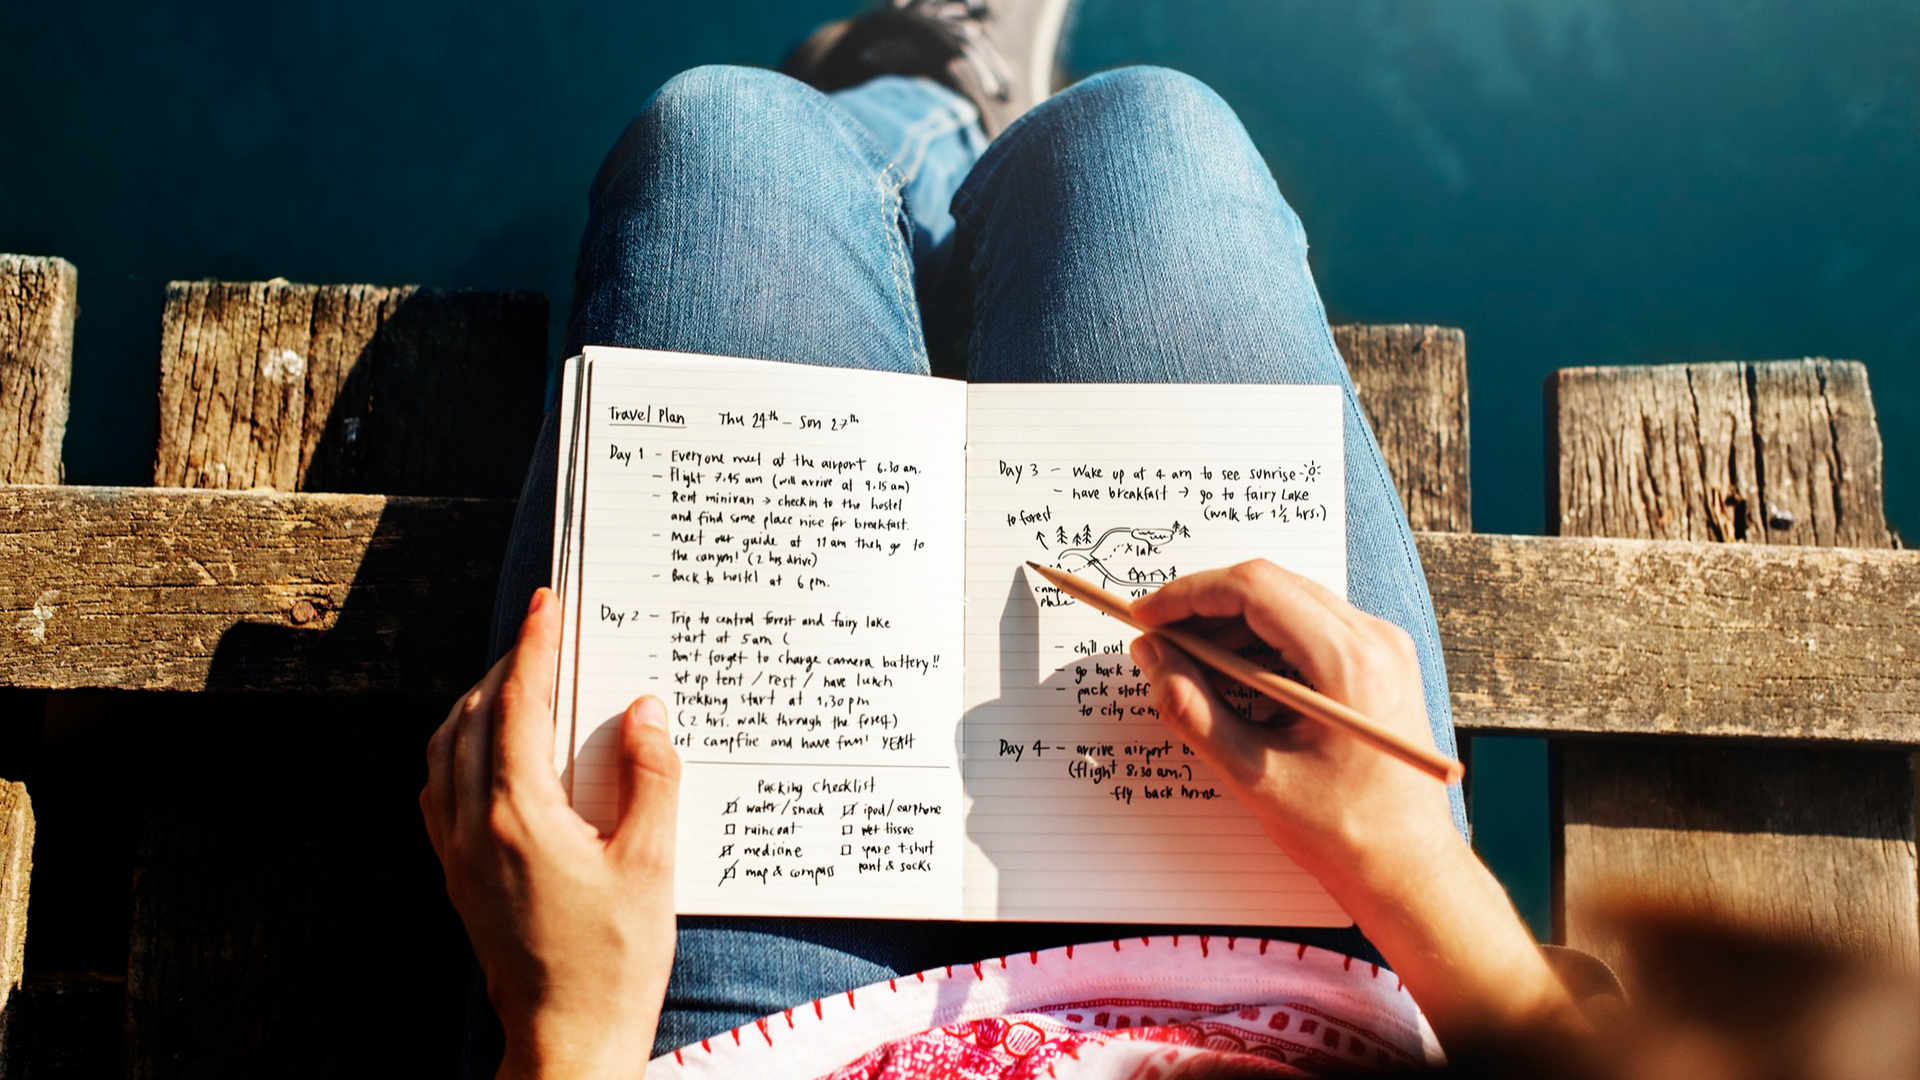 Travel Plan Thu 24th - Sun 27th
Day 1 - Everyone meet at the airport 6.30 am.
- Flight 7.45 am (will arrive at 9.15 am)
- Rent minivan → check in to the hostel
and find some place nice for breakfast.
- Meet our guide at 11 am then go to
the canyon! (2 hrs drive)
- Back to hostel at 6 pm.
Day 2 - Trip to central forest and fairy lake
start at 5am (
- Don't forget to charge camera battery!!
- Set up tent / rest / have lunch
Trekking start at 1,30 pm
(2 hrs. walk through the forest)
set campfire and have fun! YEAH
Packing checklist
water/snack
raincoat
medicine
map & compass
ipod/earphone
wet tissue
spare t-shirt
pant & socks
Day 3 - Wake up at 4 am to see sunrise
- have breakfast → go to fairy Lake
(walk for 1½ hrs.)
to forest
x lake
place
- chill out
- go back to
- pack stuff
to city
Day 4 - arrive airport
(flight 8,30 am.)
fly back home